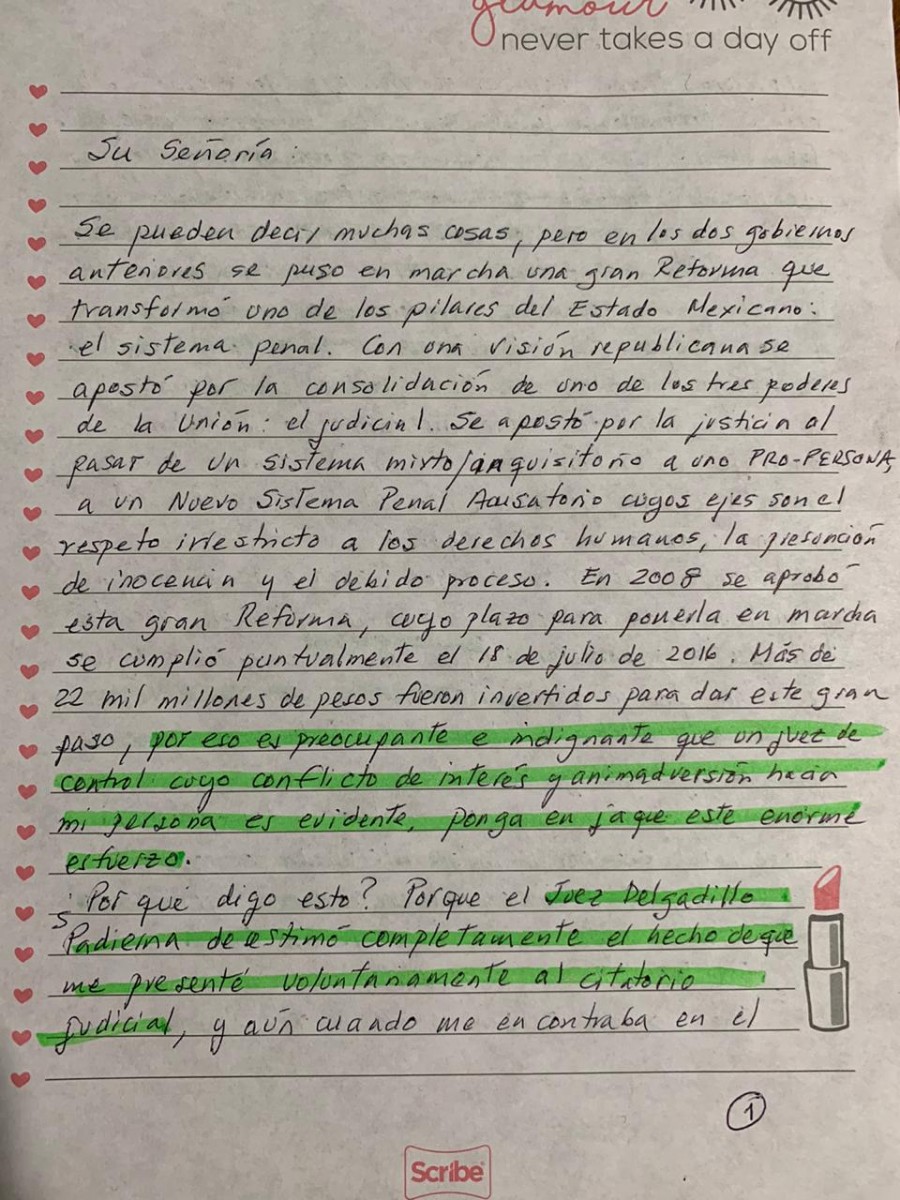 glamour
never takes a day off
Su Señoría:
Se pueden decir muchas cosas, pero en los dos gobiernos
anteriores se puso en marcha una gran Reforma que
transformó uno de los pilares del Estado Mexicano:
el sistema penal. Con una visión republicana se
apostó por la consolidación de uno de los tres poderes
de la Unión: el judicial. Se apostó por la justicia al
pasar de un sistema mixto/inquisitorio a uno PRO-PERSONA,
a un Nuevo Sistema Penal Acusatorio cuyos ejes son el
respeto irrestricto a los derechos humanos, la presunción
de inocencia y el debido proceso. En 2008 se aprobó
esta gran Reforma, cuyo plazo para ponerla en marcha
se cumplió puntualmente el 18 de julio de 2016. Más de
22 mil millones de pesos fueron invertidos para dar este gran
paso, por eso es preocupante e indignante que un juez de
control cuyo conflicto de interés y animadversión hacia
mi persona es evidente, ponga en jaque este enorme
esfuerzo.
¿Por qué digo esto? Porque el Juez Delgadillo
Padierna desestimó completamente el hecho de que
me presenté voluntariamente al citatorio
judicial, y aún cuando me encontraba en el
1
Scribe